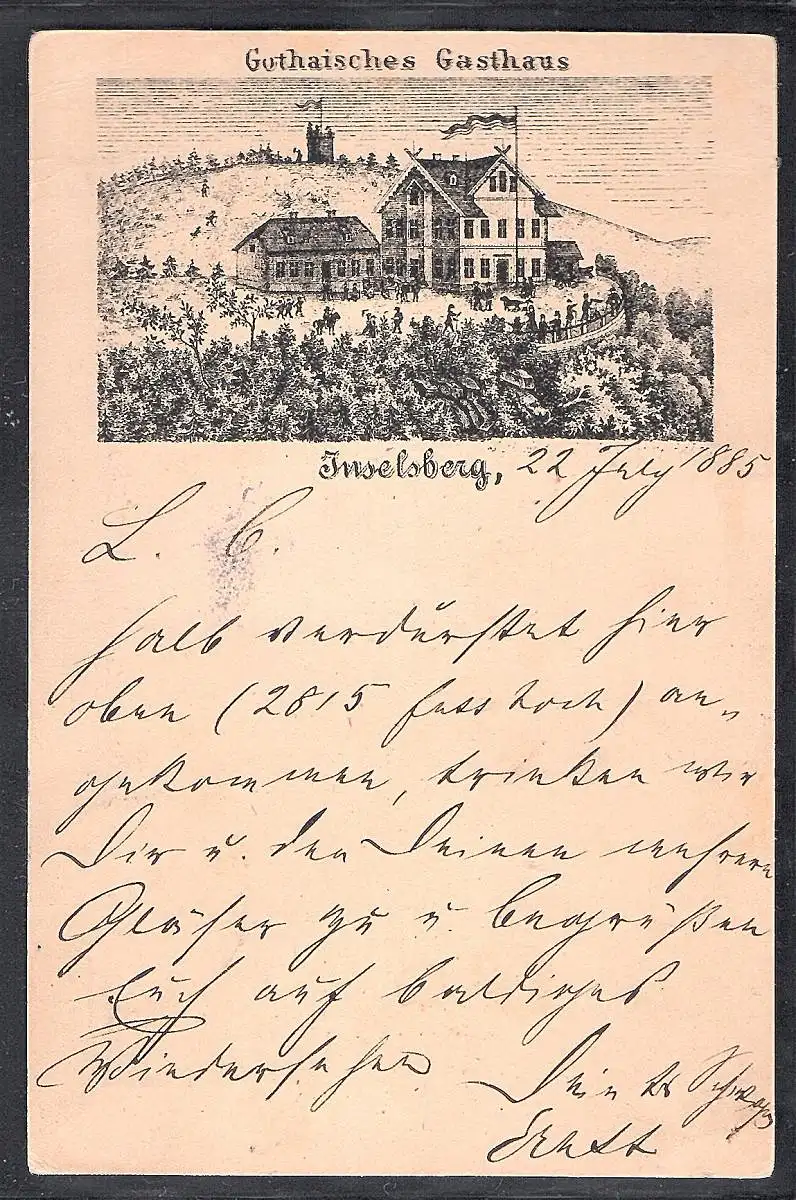 Gothaisches Gasthaus
Inselsberg, 22 July 1885
L. C.
halb verdürstet hier
oben (2815 fuss hoch) an„
gekommen, trinken wir
Dir u. den Deinen mehrere
Gläser zu u. begrüßen
Euch auf baldiges
Wiedersehen Dein